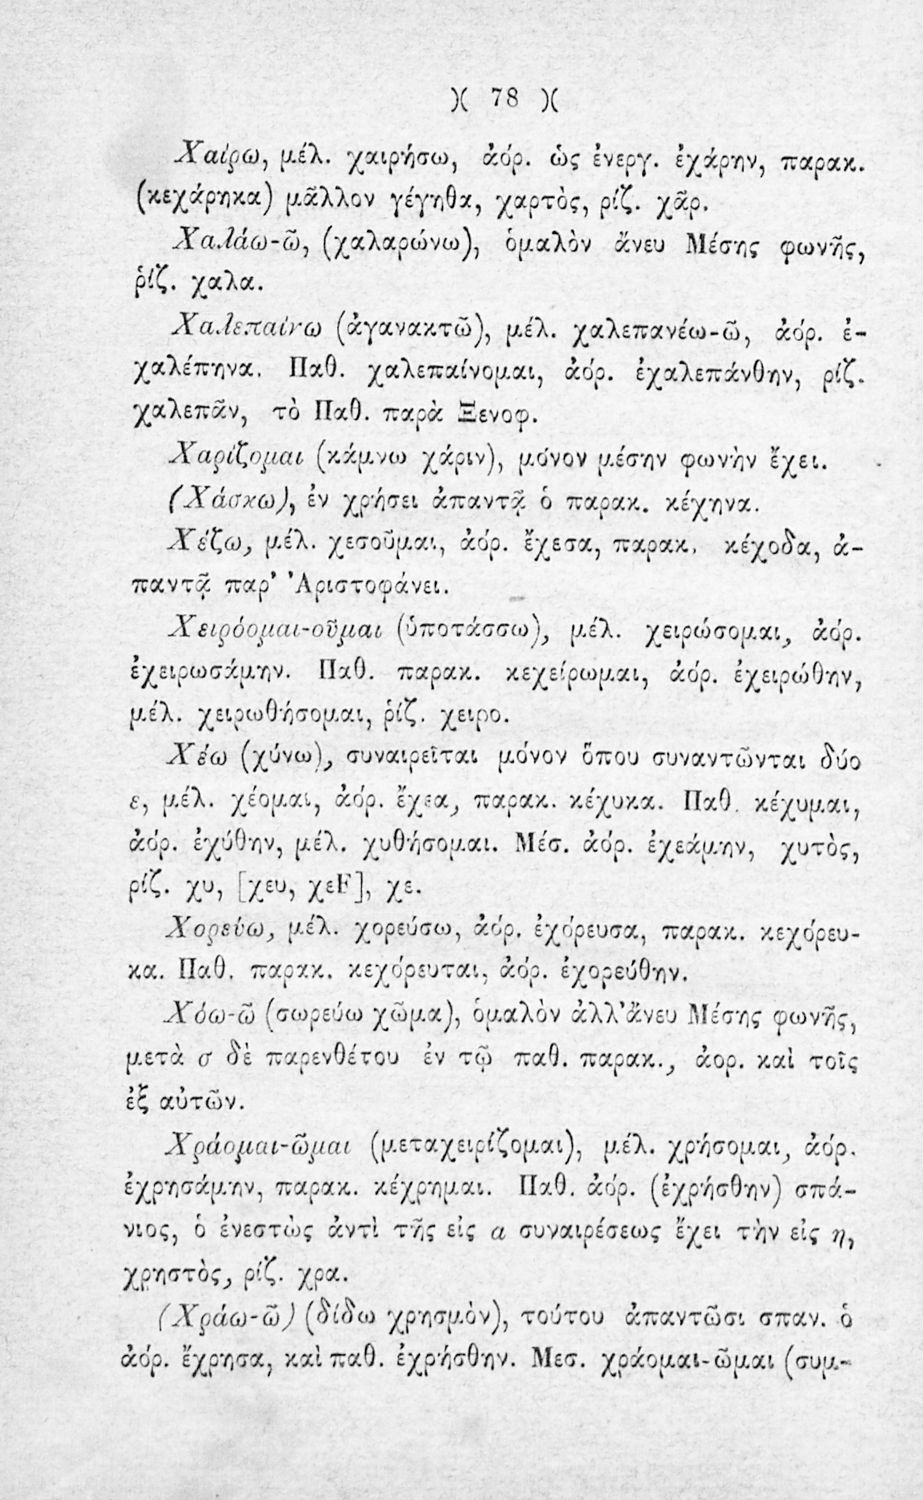 )( 78 )(
Χαίρω, μέλ. χαιρήσω, ἀόρ. ὡς ἐνεργ. ἐχάρην, παρακ.
(κεχάρηκα) μᾶλλον γέγηθα, χαρτὸς, ρίζ. χᾶρ.
Χαλάω-ῶ, (χαλαρώνω), ὁμαλὸν ἄνευ Μέσης φωνῆς,
ῥίζ. χαλα.
Χαλεπαίνω (ἀγανακτῶ), μέλ. χαλεπανέω-ῶ, ἀόρ. ἐ-
χαλέπηνα. Παθ. χαλεπαίνομαι, ἀόρ. ἐχαλεπάνθην, ρίζ.
χαλεπᾶν, τὸ Παθ. παρὰ Ξενοφ.
Χαρίζομαι (κάμνω χάριν), μόνον μέσην φωνὴν ἔχει.
(Χάσκω), ἐν χρήσει ἀπαντᾷ ὁ παρακ. κέχηνα.
Χέζω, μέλ. χεσοῦμαι, ἀόρ. ἔχεσα, παρακ. κέχοδα, ἀ-
παντᾷ παρ' Ἀριστοφάνει.
Χειρόομαι-οῦμαι (ὑποτάσσω), μέλ. χειρώσομαι, ἀόρ.
ἐχειρωσάμην. Παθ. παρακ. κεχείρωμαι, ἀόρ. ἐχειρώθην,
μέλ. χειρωθήσομαι, ῥίζ. χειρο.
Χέω (χύνω), συναιρεῖται μόνον ὅπου συναντῶνται δύο
ε, μέλ. χέομαι, ἀόρ. ἔχεα, παρακ. κέχυκα. Παθ. κέχυμαι,
ἀόρ. ἐχύθην, μέλ. χυθήσομαι. Μέσ. ἀόρ. ἐχεάμην, χυτὸς,
ρίζ. χυ, [χευ, χεF], χε.
Χορεύω, μέλ. χορεύσω, ἀόρ. ἐχόρευσα, παρακ. κεχόρευ-
κα. Παθ. παρακ. κεχόρευται, ἀόρ. ἐχορεύθην.
Χόω-ῶ (σωρεύω χῶμα), ὁμαλὸν ἀλλ' ἄνευ Μέσης φωνῆς,
μετὰ σ δὲ παρενθέτου ἐν τῷ παθ. παρακ., ἀορ. καὶ τοῖς
ἐξ αὐτῶν.
Χράομαι-ῶμαι (μεταχειρίζομαι), μέλ. χρήσομαι, ἀόρ.
ἐχρησάμην, παρακ. κέχρημαι. Παθ. ἀόρ. (ἐχρήσθην) σπά-
νιος, ὁ ἐνεστὼς ἀντὶ τῆς εἰς α συναιρέσεως ἔχει τὴν εἰς η,
χρηστὸς, ρίζ. χρα.
(Χράω-ῶ) (δίδω χρησμὸν), τούτου ἀπαντῶσι σπαν. ὁ
ἀόρ. ἔχρησα, καὶ παθ. ἐχρήσθην. Μεσ. χράομαι-ῶμαι (συμ-